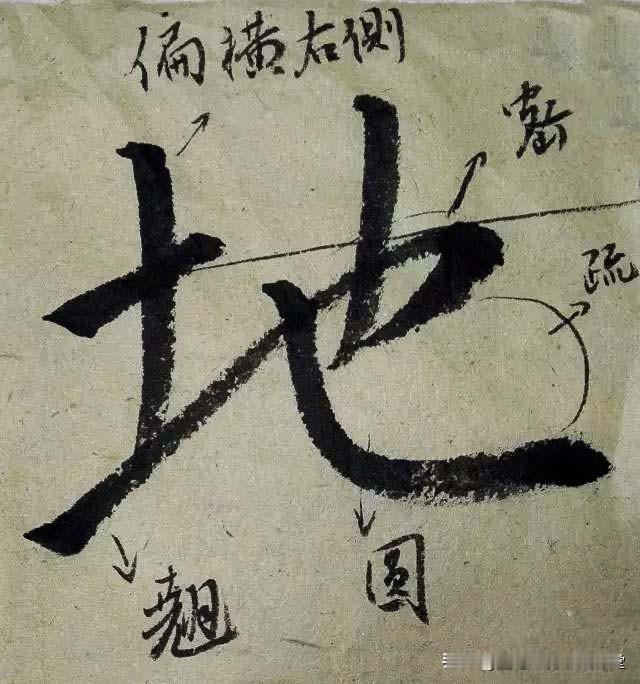 偏横右侧
地
密
疏
圆
翘